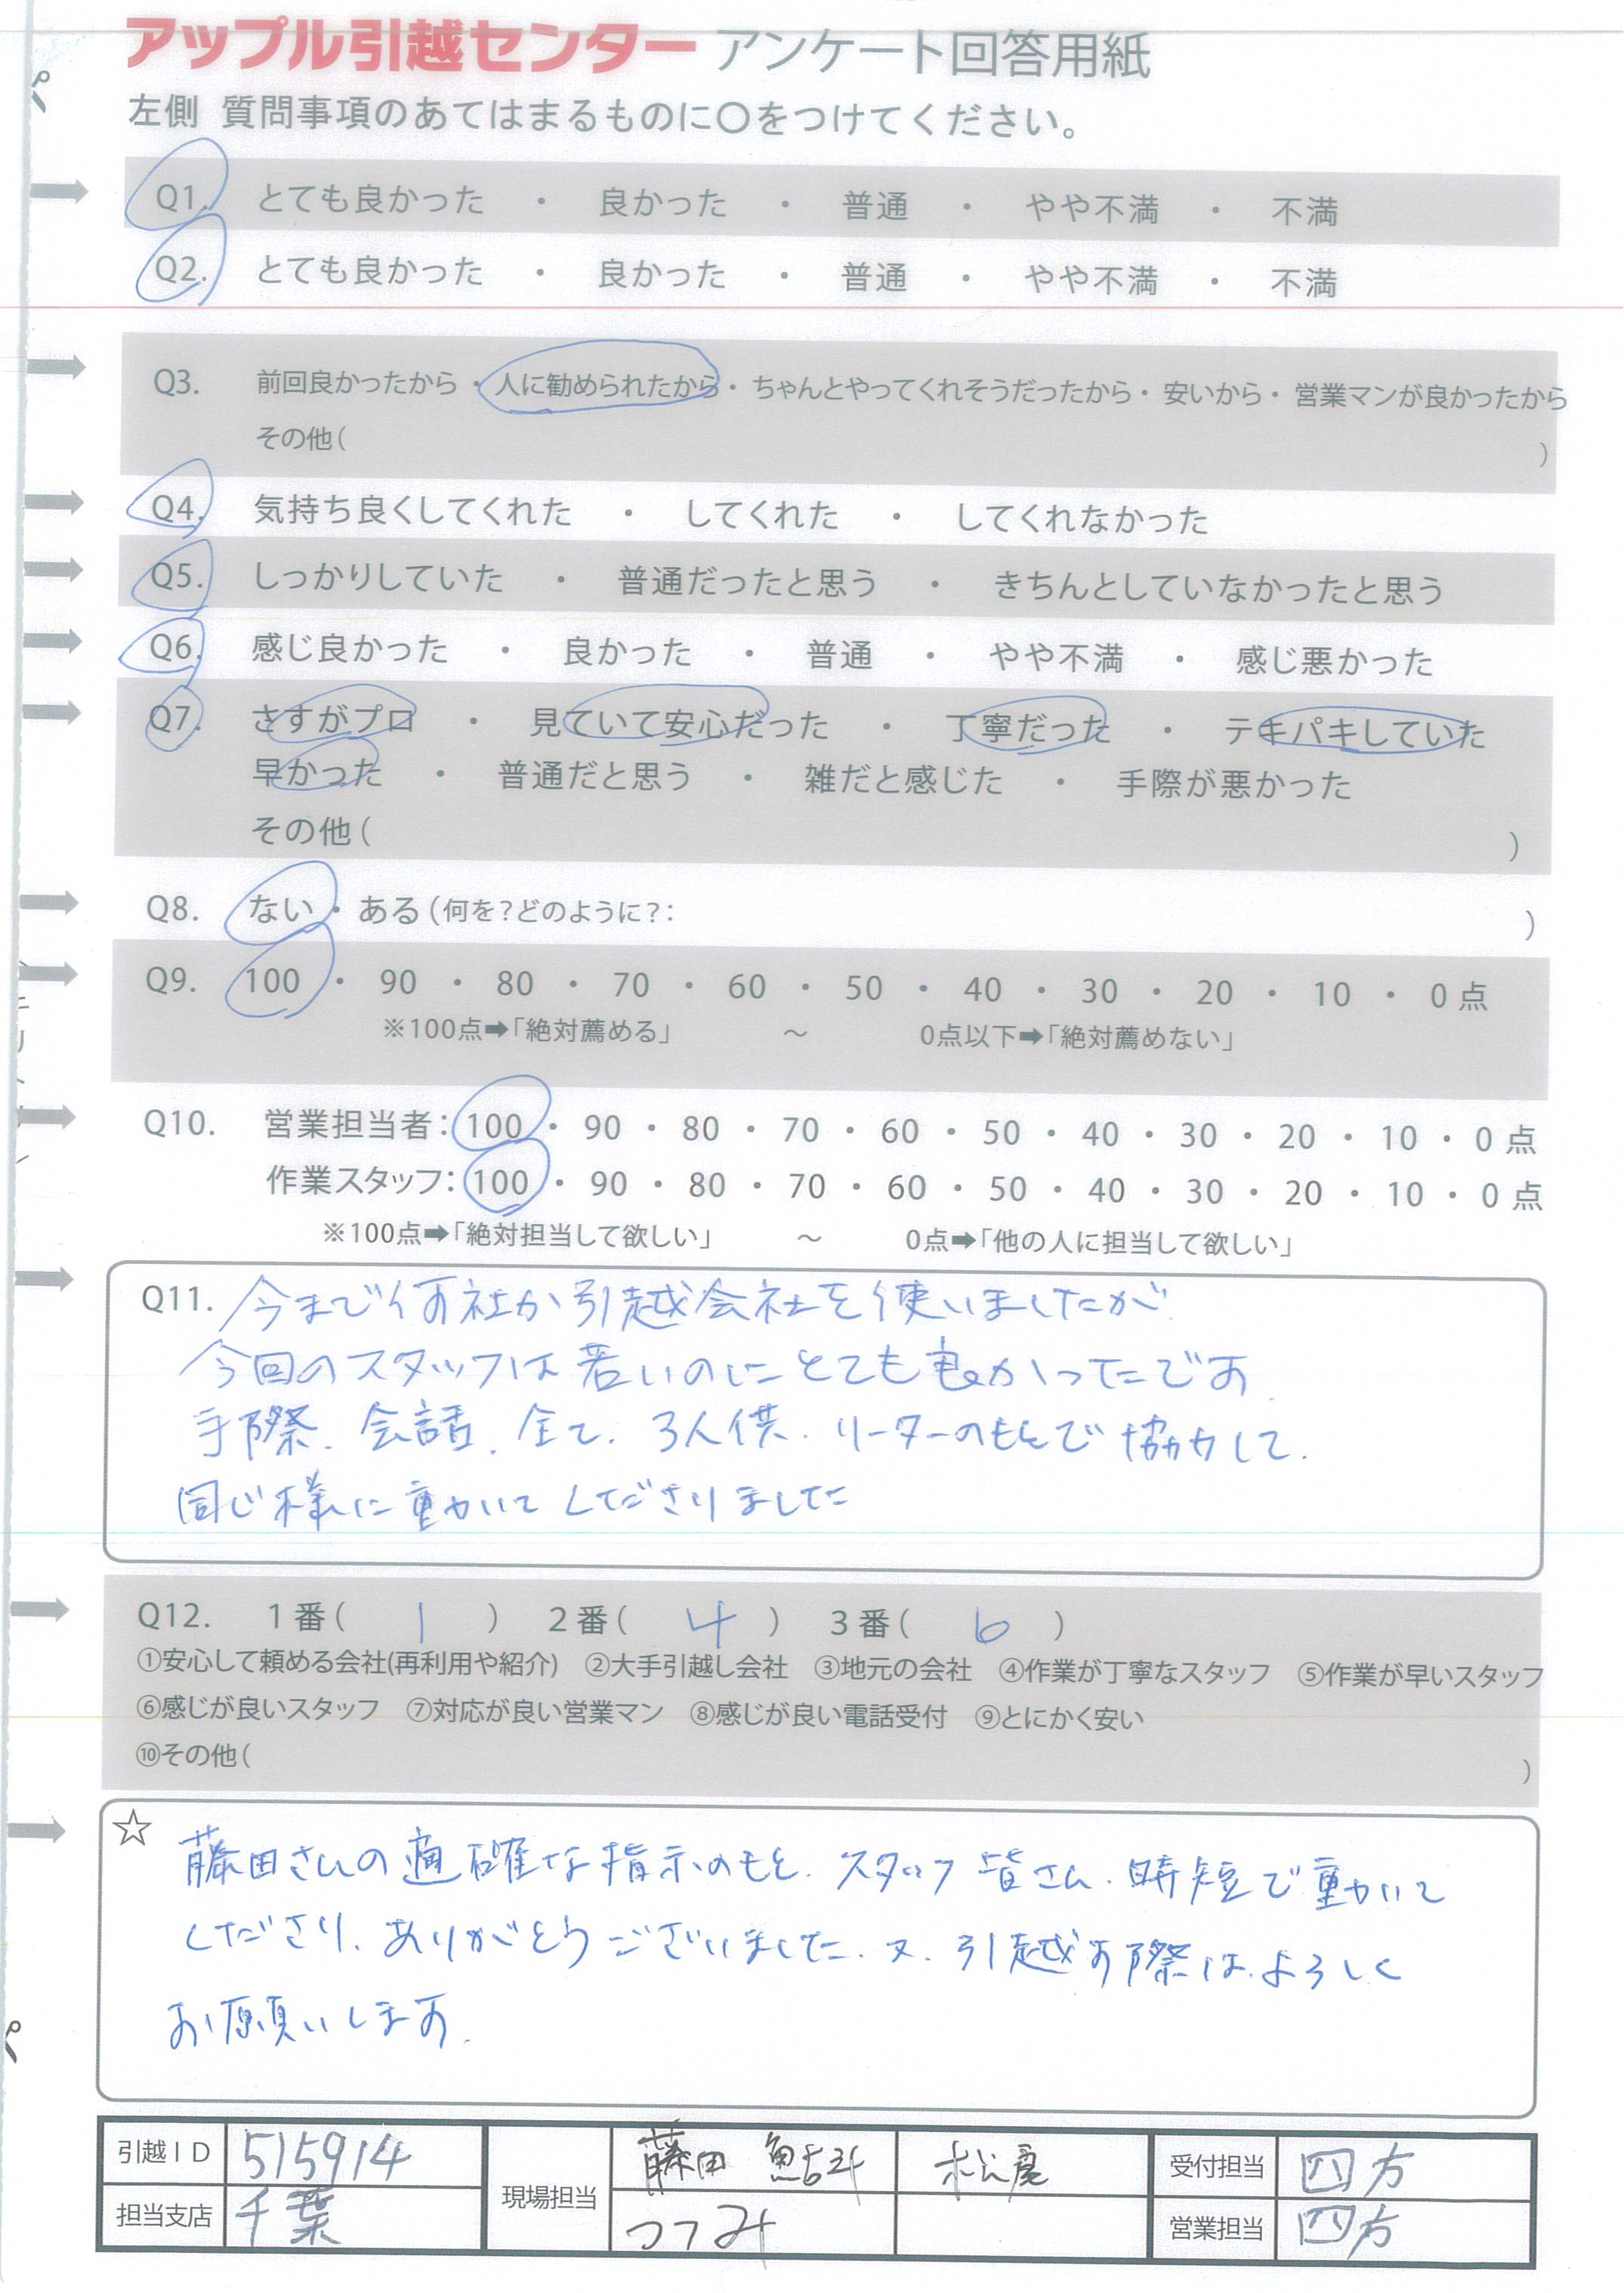 アップル引越センター アンケート回答用紙
左側 質問事項のあてはまるものに〇をつけてください。
Q1. とても良かった ・ 良かった ・ 普通 ・ やや不満 ・ 不満
Q2. とても良かった ・ 良かった ・ 普通 ・ やや不満 ・ 不満
Q3. 前回良かったから ・ 人に勧められたから ・ ちゃんとやってくれそうだったから ・ 安いから ・ 営業マンが良かったから
その他( )
Q4. 気持ち良くしてくれた ・ してくれた ・ してくれなかった
Q5. しっかりしていた ・ 普通だったと思う ・ きちんとしていなかったと思う
Q6. 感じ良かった ・ 良かった ・ 普通 ・ やや不満 ・ 感じ悪かった
Q7. さすがプロ ・ 見ていて安心だった ・ 丁寧だった ・ テキパキしていた
早かった ・ 普通だと思う ・ 雑だと感じた ・ 手際が悪かった
その他( )
Q8. ない ・ ある(何を?どのように?: )
Q9. 100 ・ 90 ・ 80 ・ 70 ・ 60 ・ 50 ・ 40 ・ 30 ・ 20 ・ 10 ・ 0 点
※100点➡「絶対薦める」 ～ 0点以下➡「絶対薦めない」
Q10. 営業担当者: 100 ・ 90 ・ 80 ・ 70 ・ 60 ・ 50 ・ 40 ・ 30 ・ 20 ・ 10 ・ 0 点
作業スタッフ: 100 ・ 90 ・ 80 ・ 70 ・ 60 ・ 50 ・ 40 ・ 30 ・ 20 ・ 10 ・ 0 点
※100点➡「絶対担当して欲しい」 ～ 0点➡「他の人に担当して欲しい」
Q11. 今まで何社か引越会社を使いましたが
今回のスタッフは若いのにとても良かったです
手際、会話、全て、3人供、リーダーのもとで協力して、
同じ様に動いてくださりました
Q12. 1番( 1 ) 2番( 4 ) 3番( 6 )
①安心して頼める会社(再利用や紹介) ②大手引越し会社 ③地元の会社 ④作業が丁寧なスタッフ ⑤作業が早いスタッフ
⑥感じが良いスタッフ ⑦対応が良い営業マン ⑧感じが良い電話受付 ⑨とにかく安い
⑩その他( )
☆ 藤田さんの適確な指示のもと、スタッフ皆さん、時短で動いて
くださり、ありがとうございました、又、引越す際は、よろしく
お願いします。
引越ID 515914 現場担当 藤田 松尾 受付担当 四方
担当支店 千葉 つつみ 営業担当 四方